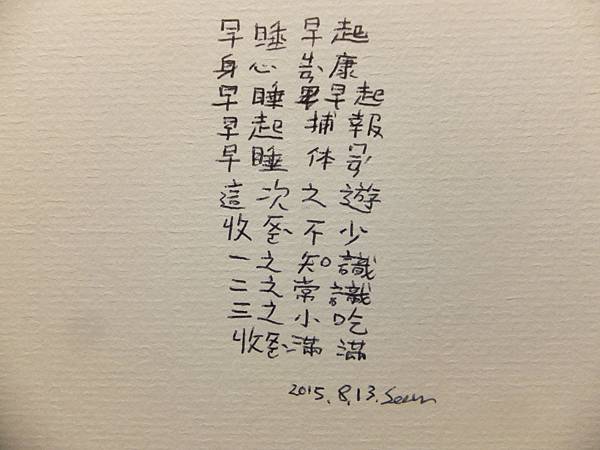 早睡早起
身心 康
早睡早起
早起 捕 報
早睡 体
這次之遊
收 不少
一之知識
二之常識
三之小吃
收 滿滿
2015.8.13.